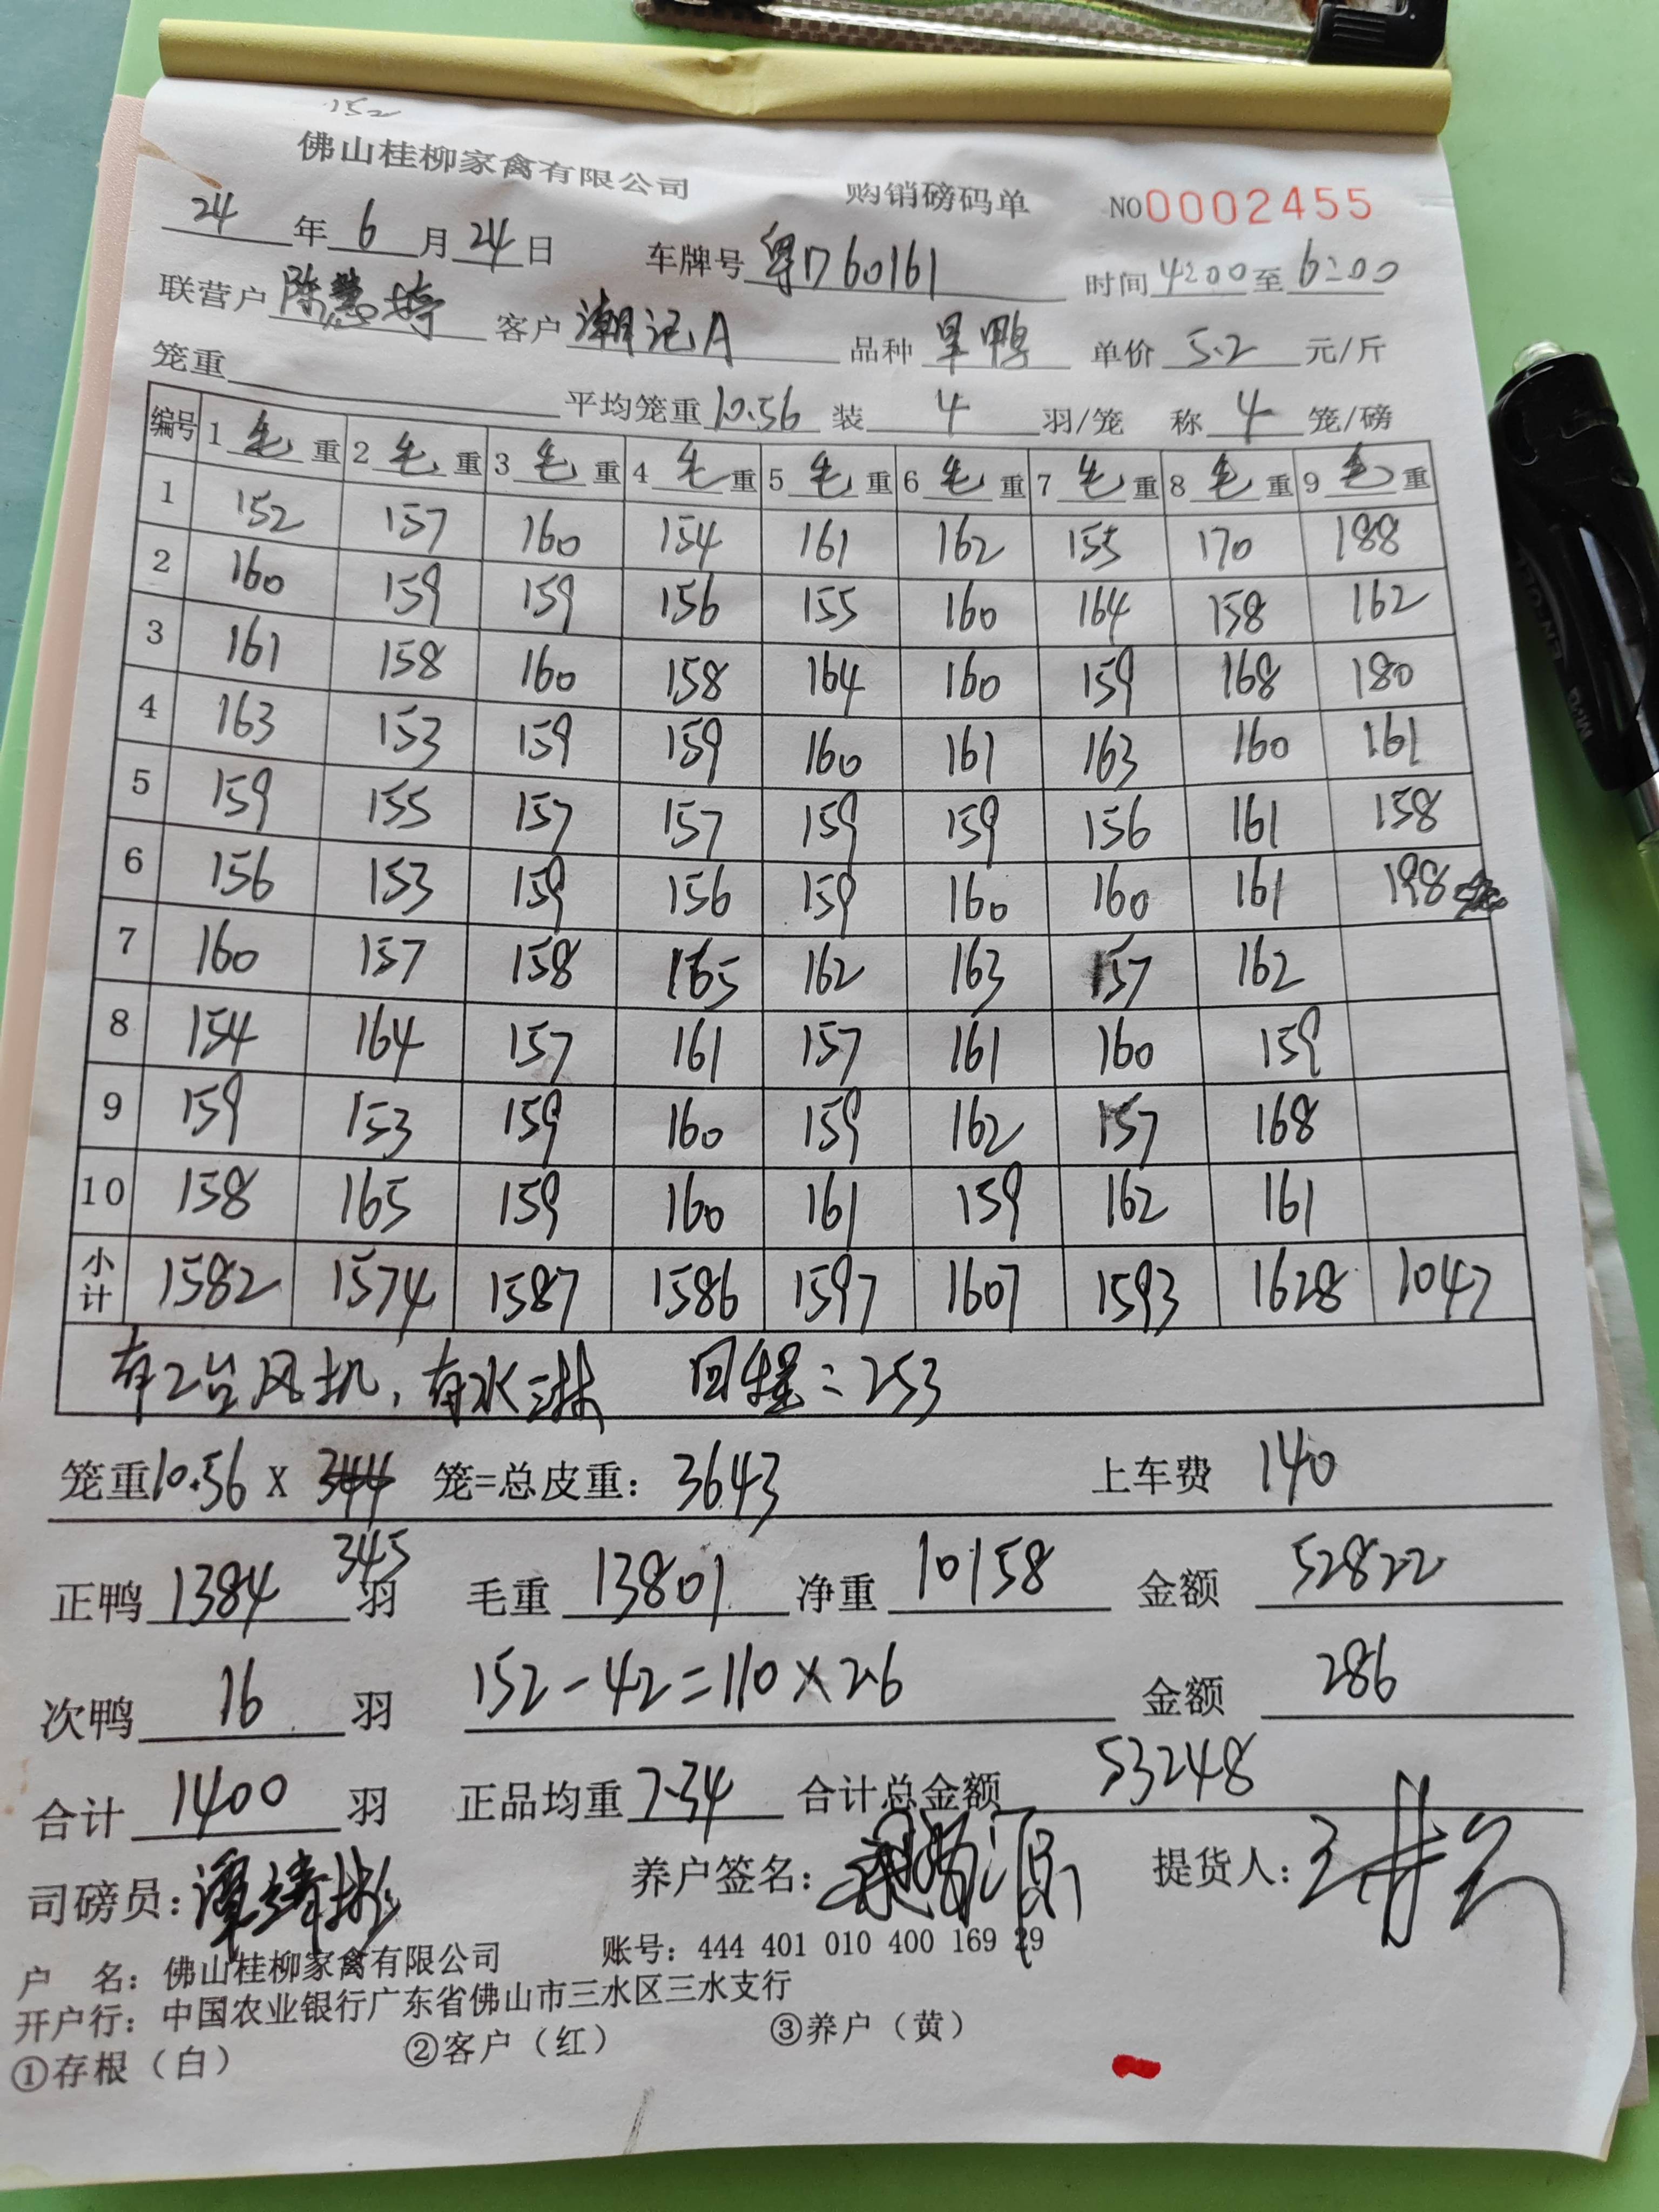 152
佛山桂柳家禽有限公司 购销磅码单 NO0002455
24年6月24日 车牌号 粤D60161 时间 4:00至6:00
联营户 陈慧婷 客户 潮记A 品种 旱鸭 单价 5.2 元/斤
笼重 平均笼重 10.56 装 4 羽/笼 称 4 笼/磅
编号 1毛重 2毛重 3毛重 4毛重 5毛重 6毛重 7毛重 8毛重 9毛重
1 152 157 160 154 161 162 155 170 188
2 160 159 159 156 155 160 164 158 162
3 161 158 160 158 164 160 159 168 180
4 163 153 159 159 160 161 163 160 161
5 159 155 157 157 159 159 156 161 158
6 156 153 159 156 159 160 160 161 198
7 160 157 158 165 162 163 157 162
8 154 164 157 161 157 161 160 159
9 159 153 159 160 159 162 157 168
10 158 165 159 160 161 159 162 161
小计 1582 1574 1587 1586 1597 1607 1593 1628 1047
有2台风机，有水淋 回程:253
笼重10.56 X 344 笼=总皮重：3643 上车费 140
345
正鸭 1384 羽 毛重 13801 净重 10158 金额 52822
次鸭 16 羽 152-42=110×2.6 金额 286
合计 1400 羽 正品均重 7.34 合计总金额 53248
司磅员： 养户签名： 提货人：
户 名：佛山桂柳家禽有限公司 账号：444 401 010 400 169 29
开户行：中国农业银行广东省佛山市三水区三水支行
①存根（白） ②客户（红） ③养户（黄）